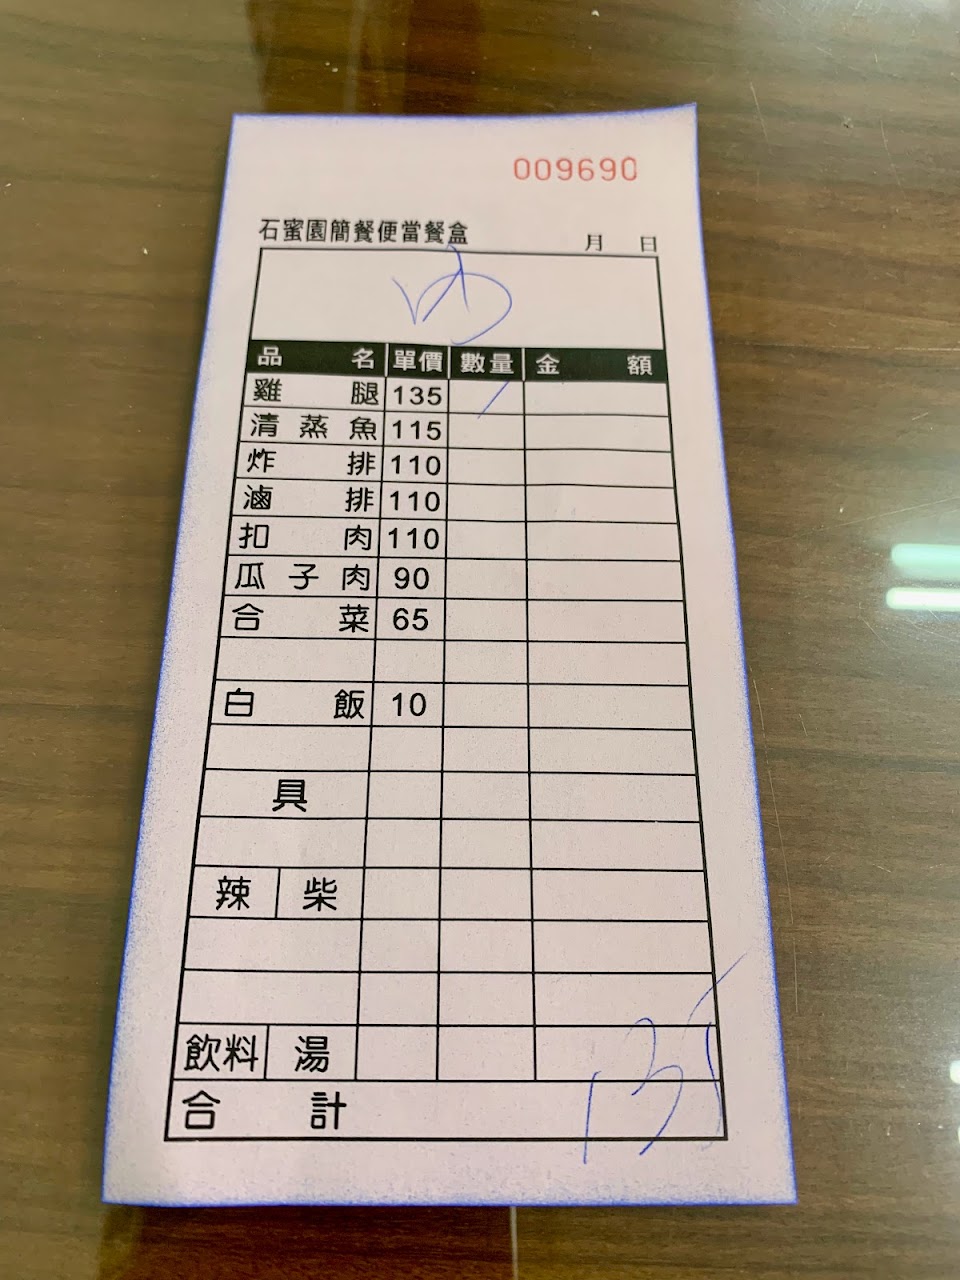 009690
石蜜園簡餐便當餐盒 月 日
內
品名 單價 數量 金額
雞腿 135 /
清蒸魚 115
炸排 110
滷排 110
扣肉 110
瓜子肉 90
合菜 65
白飯 10
具
辣 柴
飲料 湯
合計 135